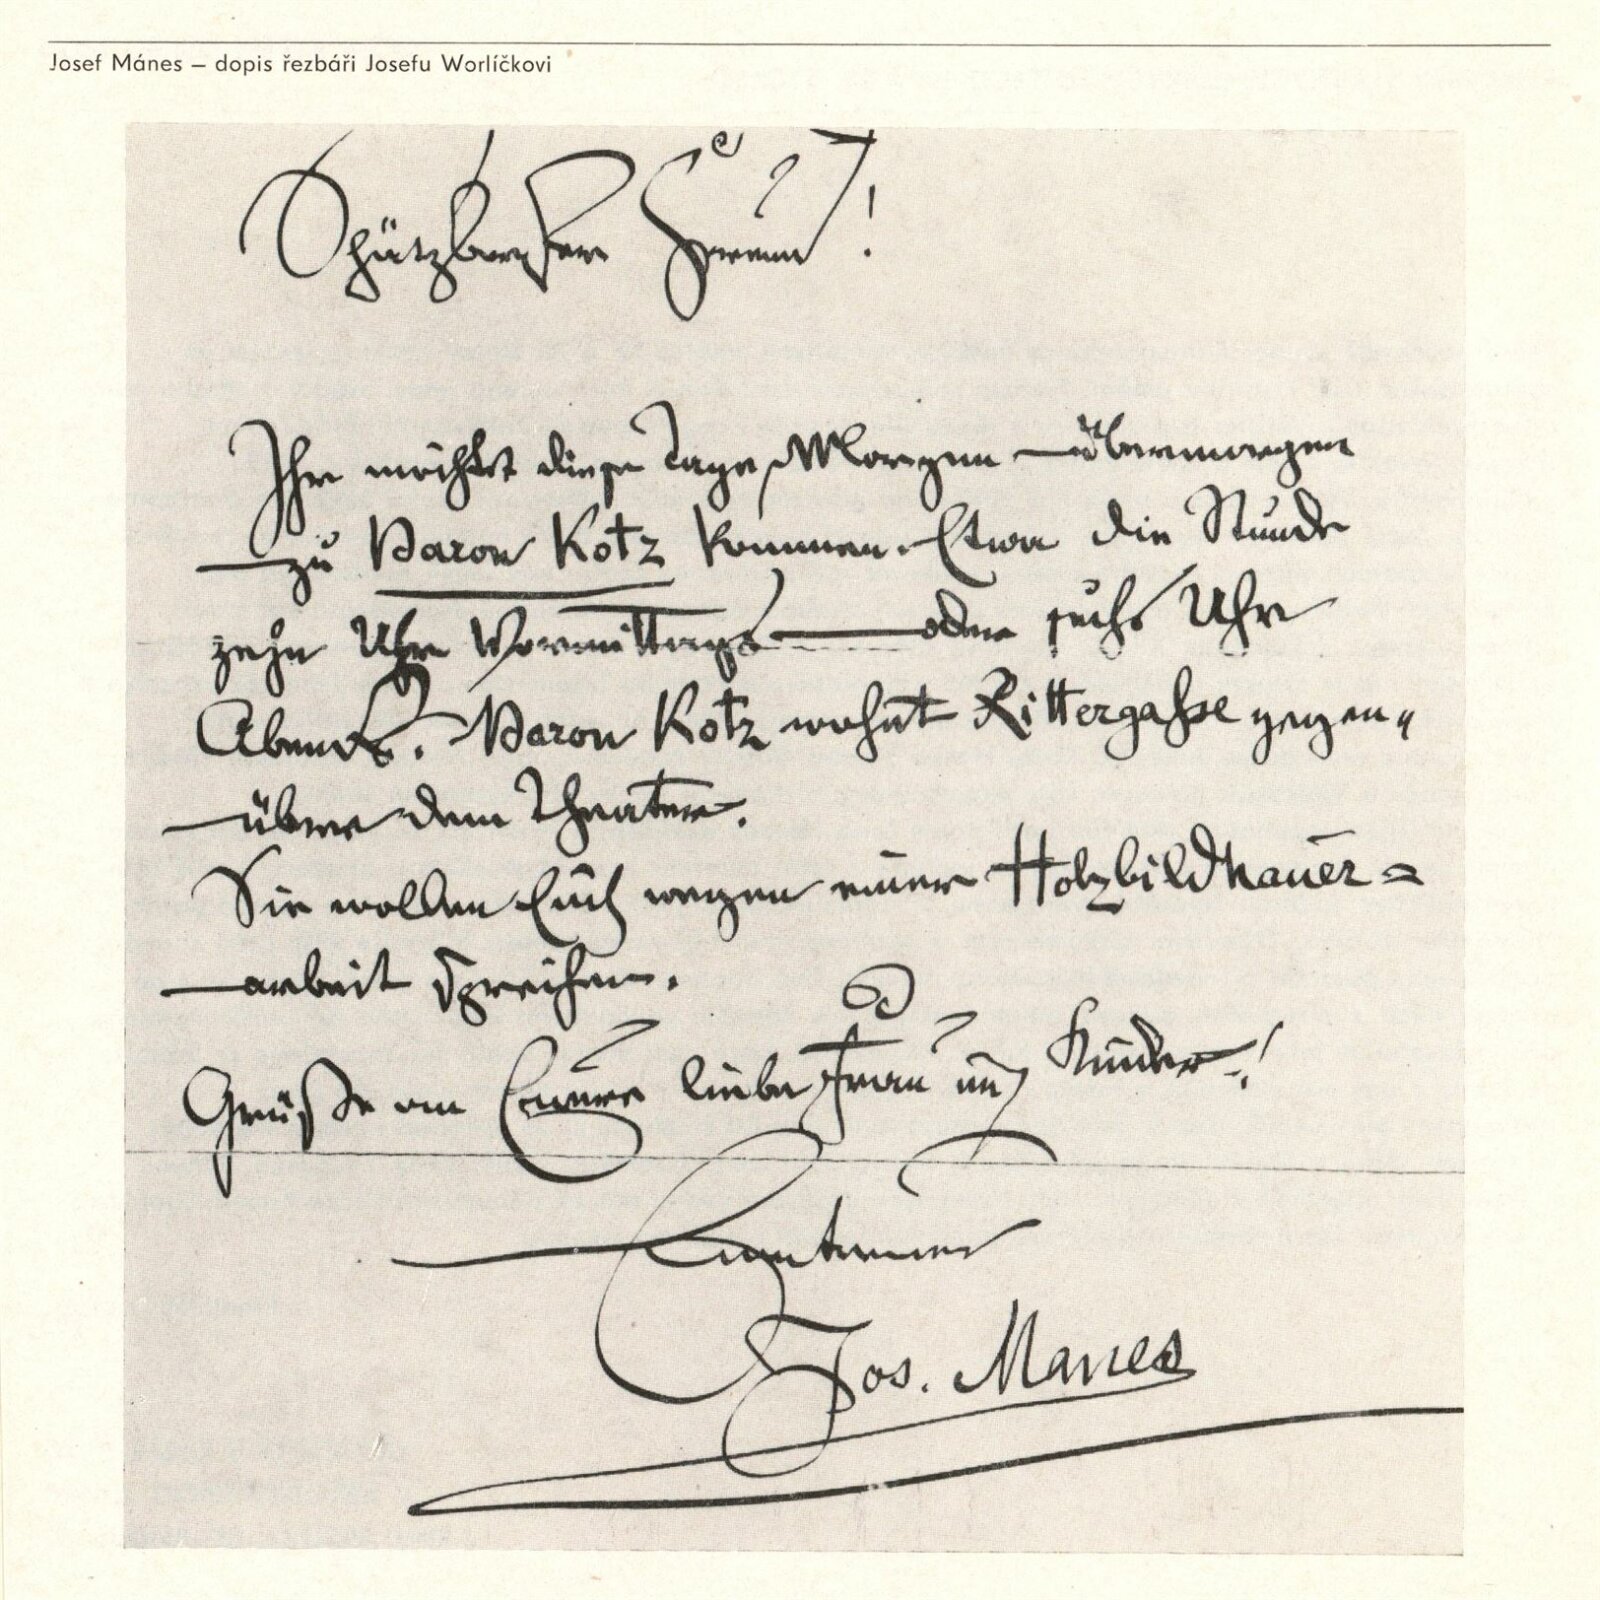 Josef Mánes – dopis řezbáři Josefu Worlíčkovi
Schätzbarster Freund!
Ihr möchtet diese Tage, Morgen – übermorgen
– zu Baron Kotz kommen. Etwa die Stunde
zehn Uhr Vormittags – oder sechs Uhr
Abends. Baron Kotz wohnt Rittergasse gegen„
– über dem Theater.
Sie wollen Euch wegen einer Holzbildhauer=
– arbeit sprechen.
Grüße an Euere liebe Frau und Kinder!
Jos. Manes